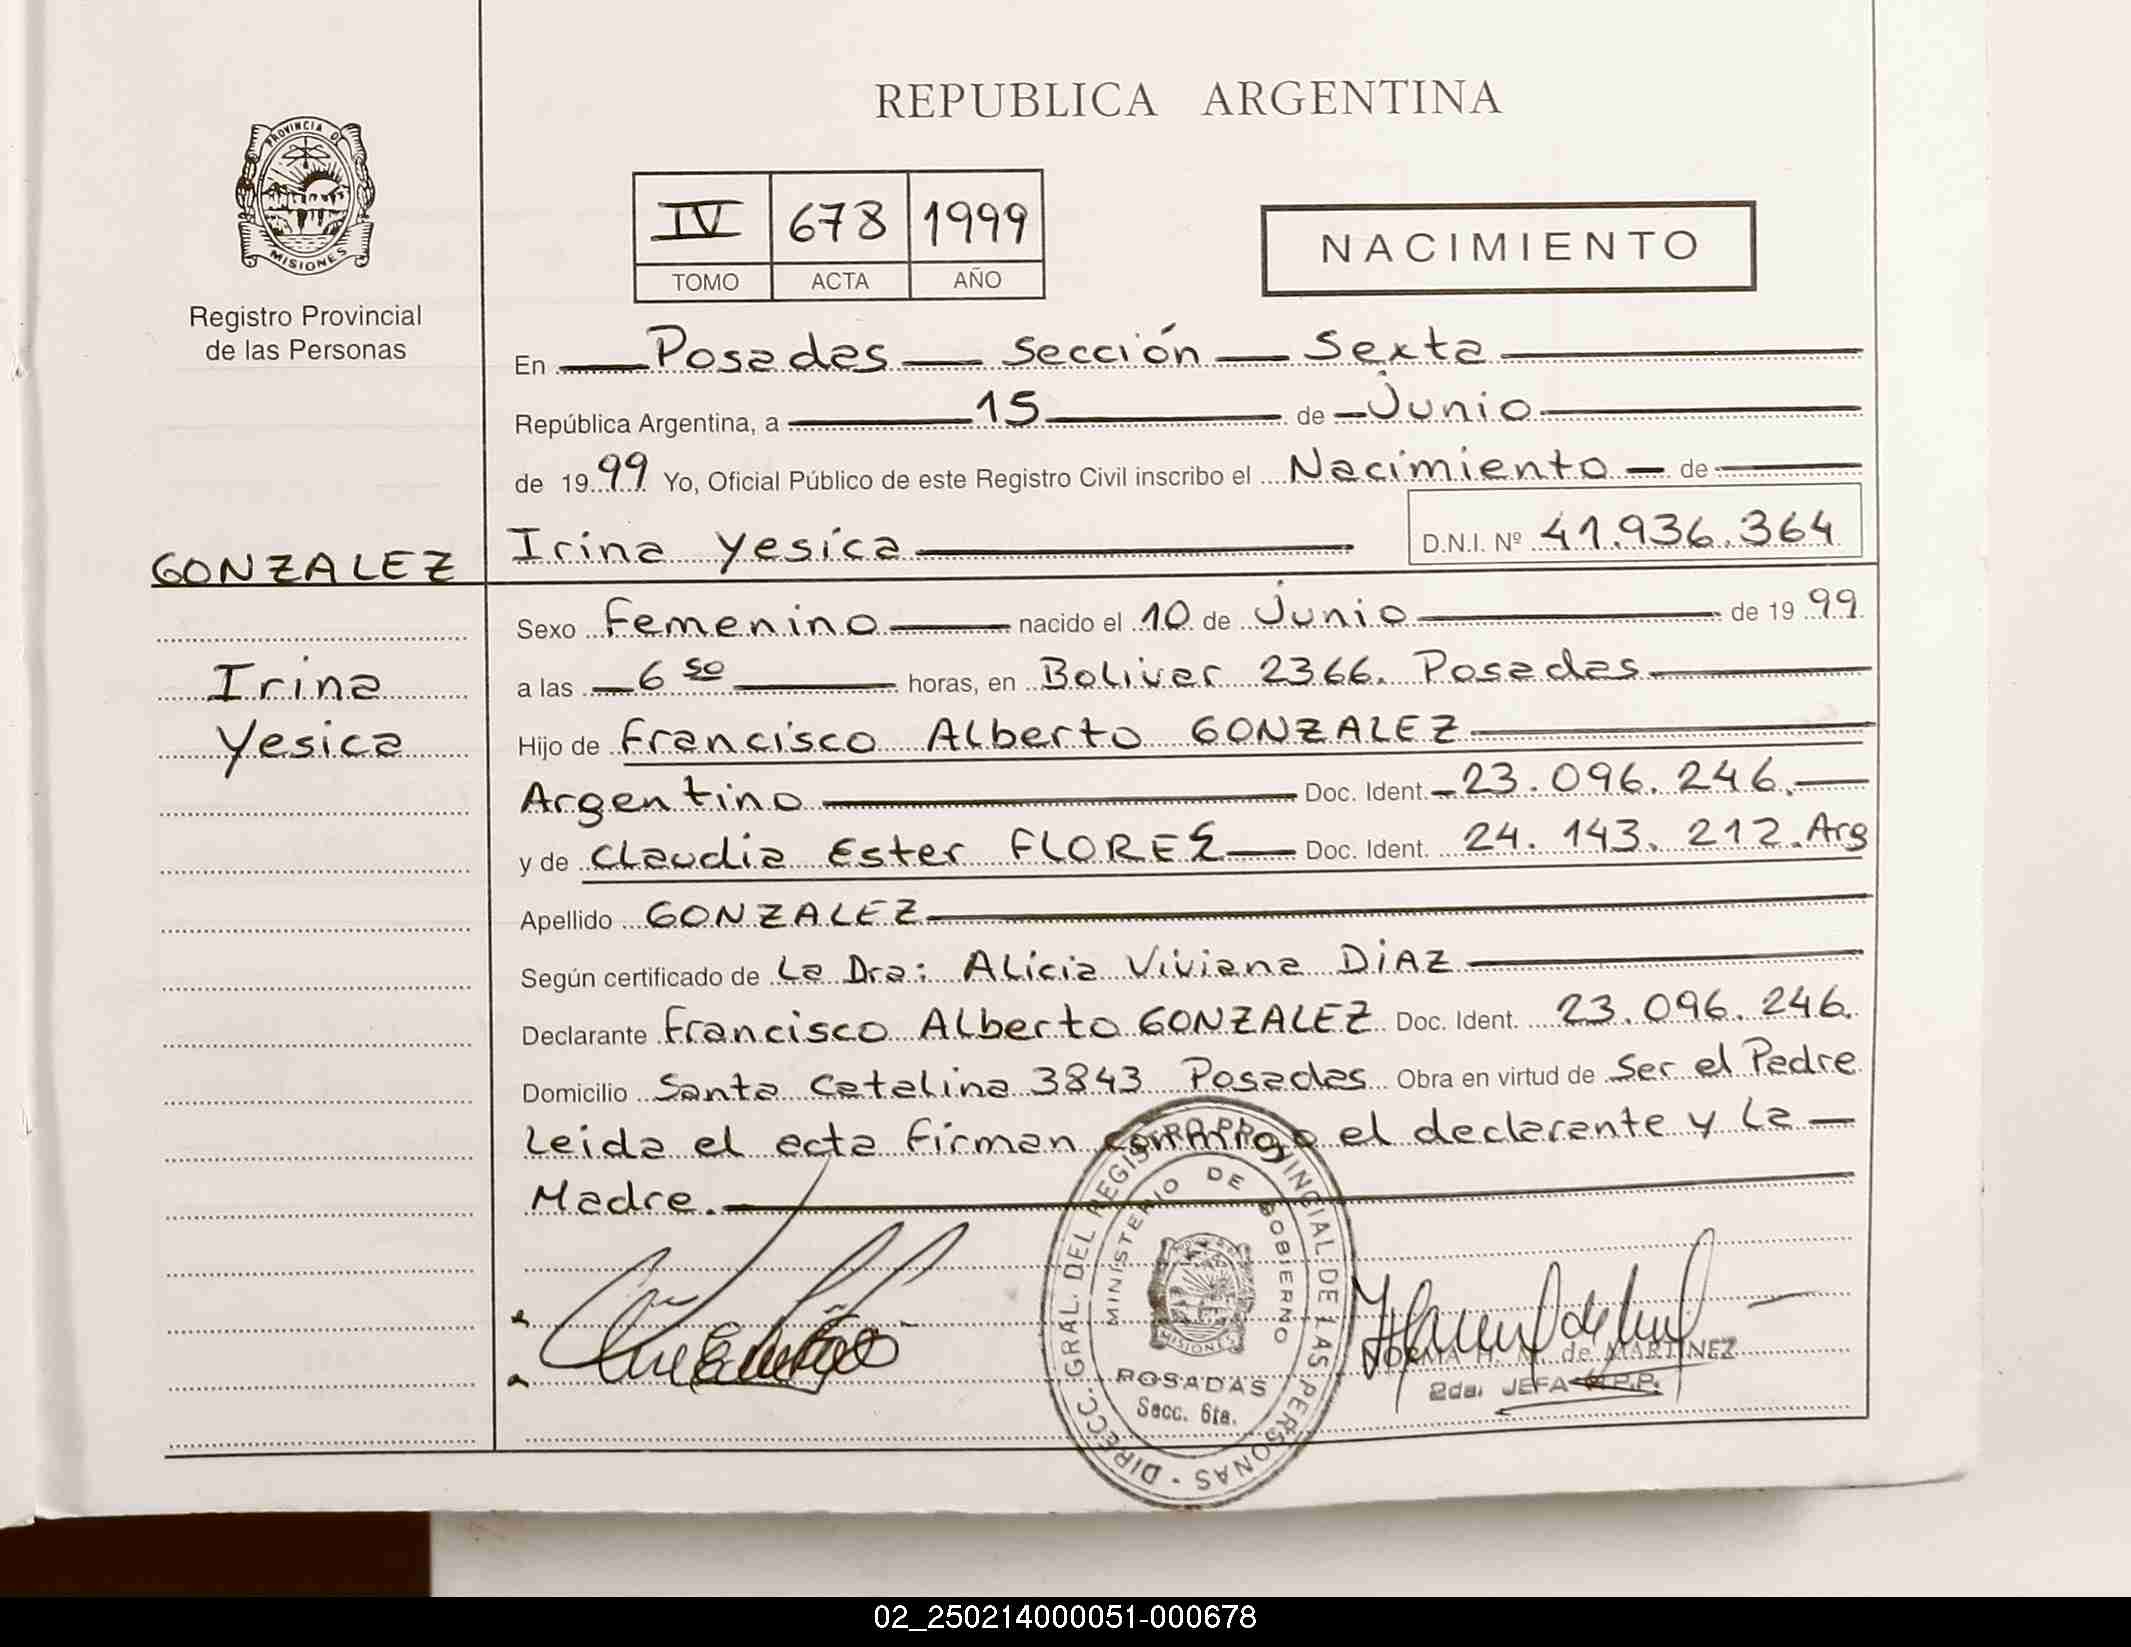 REPUBLICA ARGENTINA
PROVINCIA DE
MISIONES
Registro Provincial
de las Personas
IV 678 1999
TOMO ACTA AÑO
NACIMIENTO
En Posadas Sección Sexta
República Argentina, a 15 de Junio
de 1999 Yo, Oficial Público de este Registro Civil inscribo el Nacimiento de
Irina Yesica D.N.I. Nº 41.936.364
GONZALEZ
Irina
Yesica
Sexo Femenino nacido el 10 de Junio de 1999
a las 6 50 horas, en Bolivar 2366. Posadas
Hijo de Francisco Alberto GONZALEZ
Argentino Doc. Ident. 23.096.246.
y de Claudia Ester FLORES Doc. Ident. 24.143.212. Arg
Apellido GONZALEZ
Según certificado de La Dra: Alicia Viviana DiAZ
Declarante Francisco Alberto GONZALEZ Doc. Ident. 23.096.246.
Domicilio Santa Catalina 3843 Posadas Obra en virtud de Ser el Padre
Leida el acta firman conmigo el declarante y la
Madre.
DIRECC. GRAL. DEL REGISTRO PROVINCIAL DE LAS PERSONAS
MINISTERIO DE GOBIERNO
MISIONES
POSADAS
Secc. 6ta.
NORMA H. M. de MARTINEZ
2da. JEFA R.P.P.
02_250214000051-000678